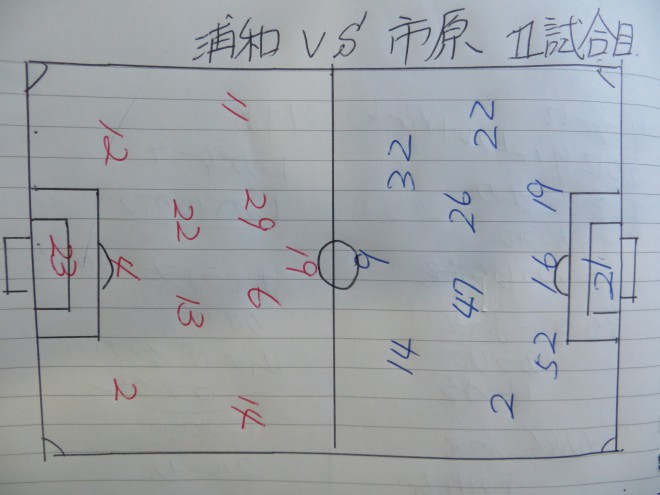 浦和 VS 市原 Ⅱ試合目
11
12
29
22
19
23
4
6
13
2
14
22
32
19
26
9
16
21
47
14
52
2